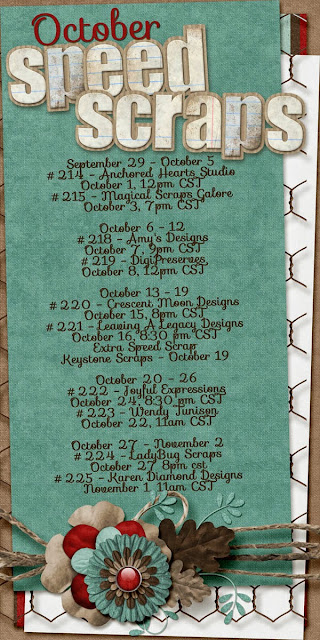 October
speed
scraps
September 29 - October 5
# 214 - Anchored Hearts Studio
October 1, 12pm CST
# 215 - Magical Scraps Galore
October 3, 7pm CST
October 6 - 12
# 218 - Amy's Designs
October 7, 9pm CST
# 219 - DigiPreserves
October 8, 12pm CST
October 13 - 19
# 220 - Crescent Moon Designs
October 15, 8pm CST
# 221 - Leaving A Legacy Designs
October 16, 8:30 pm CST
Extra Speed Scrap
Keystone Scraps - October 19
October 20 - 26
# 222 - Joyful Expressions
October 24, 8:30 pm CST
# 223 - Wendy Tunison
October 22, 11am CST
October 27 - November 2
# 224 - LadyBug Scraps
October 27 8pm cst
# 225 - Karen Diamond Designs
November 1, 11am CST